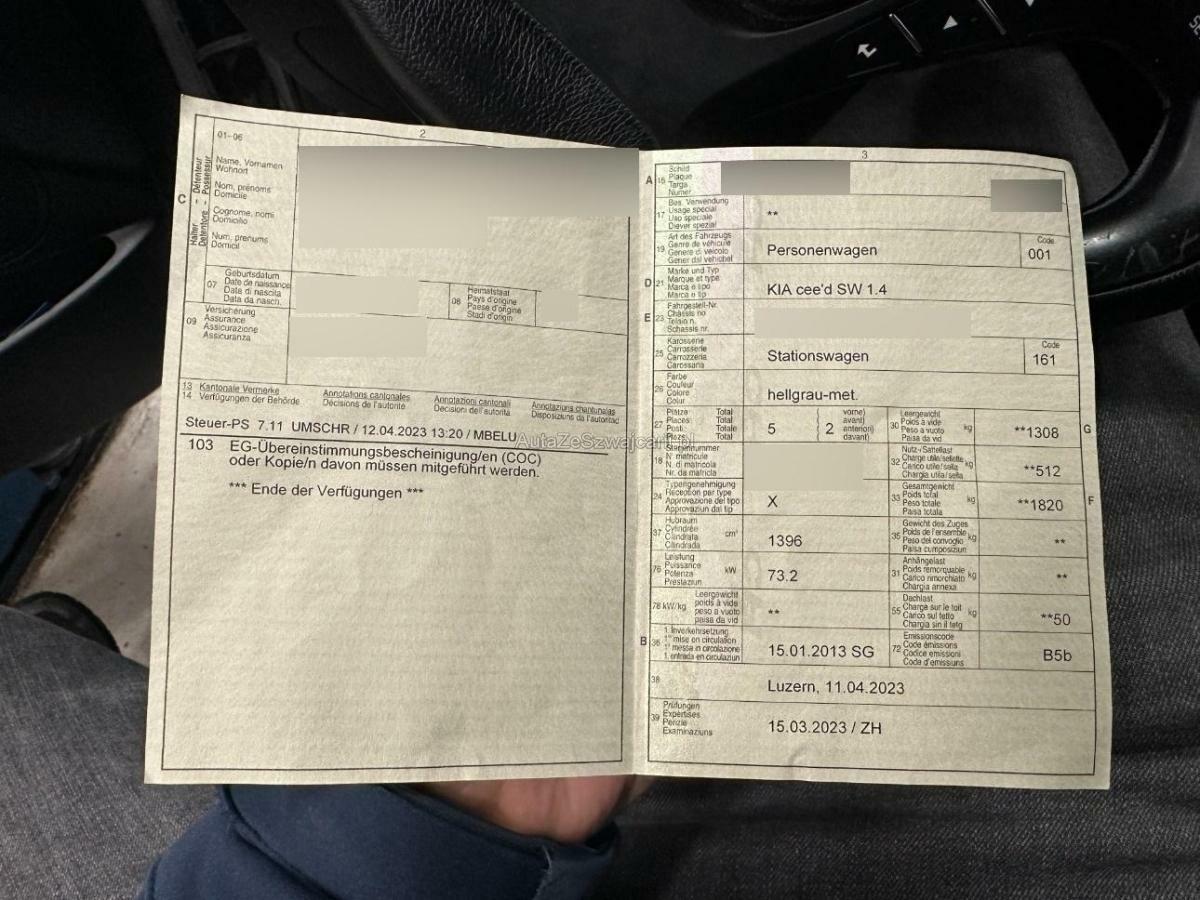 2
01-06
C
Halter - Détenteur
Detentore - Possessur
Name, Vornamen
Wohnort
Nom, prénoms
Domicile
Cognome, nomi
Domicilio
Num, prenums
Domicil
07
Geburtsdatum
Date de naissance
Data di nascita
Data da nasch.
08
Heimatstaat
Pays d'origine
Paese d'origine
Stadi d'origin
09
Versicherung
Assurance
Assicurazione
Assicuranza
13 Kantonale Vermerke Annotations cantonales Annotazioni cantonali Annotaziuns chantunalas
14 Verfügungen der Behörde Décisions de l'autorité Decisioni dell'autorità Disposiziuns da l'autoritad
Steuer-PS 7.11 UMSCHR / 12.04.2023 13:20 / MBELU
103 EG-Übereinstimmungsbescheinigung/en (COC)
oder Kopie/n davon müssen mitgeführt werden.
*** Ende der Verfügungen ***
AutaZeSzwajcarii.pl
3
A 15
Schild
Plaque
Targa
Numer
17
Bes. Verwendung
Usage spécial
Uso speciale
Diever spezial
**
19
Art des Fahrzeugs
Genre de véhicule
Genere di veicolo
Gener dal vehichel
Personenwagen
Code
001
D 21
Marke und Typ
Marque et type
Marca e tipo
Marca e tip
KIA cee'd SW 1.4
E 23
Fahrgestell-Nr.
Châssis no
Telaio n.
Schassis nr.
25
Karosserie
Carrosserie
Carrozzeria
Carossaria
Stationswagen
Code
161
26
Farbe
Couleur
Colore
Colur
hellgrau-met.
27
Plätze Total
Places: Total
Posti: Totale
Plazs: Total
5
( vorne)
( avant)
( anteriori)
( davant)
2
30
Leergewicht
Poids à vide
Peso a vuoto
Paisa da vid
kg
**1308
G
18
Stammnummer
N. matricule
N. di matricola
Nr. da matricla
32
Nutz-/Sattellast
Charge utile/sellette
Carico utile/sella
Chargia utila/sella
kg
**512
24
Typengenehmigung
Réception par type
Approvazione del tipo
Approvaziun dal tip
X
33
Gesamtgewicht
Poids total
Peso totale
Paisa totala
kg
**1820
F
37
Hubraum
Cylindrée
Cilindrata
Cilindrada
cm³
1396
35
Gewicht des Zuges
Poids de l'ensemble
Peso del convoglio
Paisa cumposiziun
kg
**
76
Leistung
Puissance
Potenza
Prestaziun
kW
73.2
31
Anhängelast
Poids remorquable
Carico rimorchiato
Chargia annexa
kg
**
78 kW/kg
Leergewicht
poids à vide
peso a vuoto
paisa da vid
**
55
Dachlast
Charge sur le toit
Carico sul tetto
Chargia sin il tetg
kg
**50
B 36
1. Inverkehrsetzung
1re mise en circulation
1a messa in circolazione
1. entrada en circulaziun
15.01.2013 SG
72
Emissionscode
Code émissions
Codice emissioni
Code d'emissiuns
B5b
38
Luzern, 11.04.2023
39
Prüfungen
Expertises
Perizie
Examinaziuns
15.03.2023 / ZH